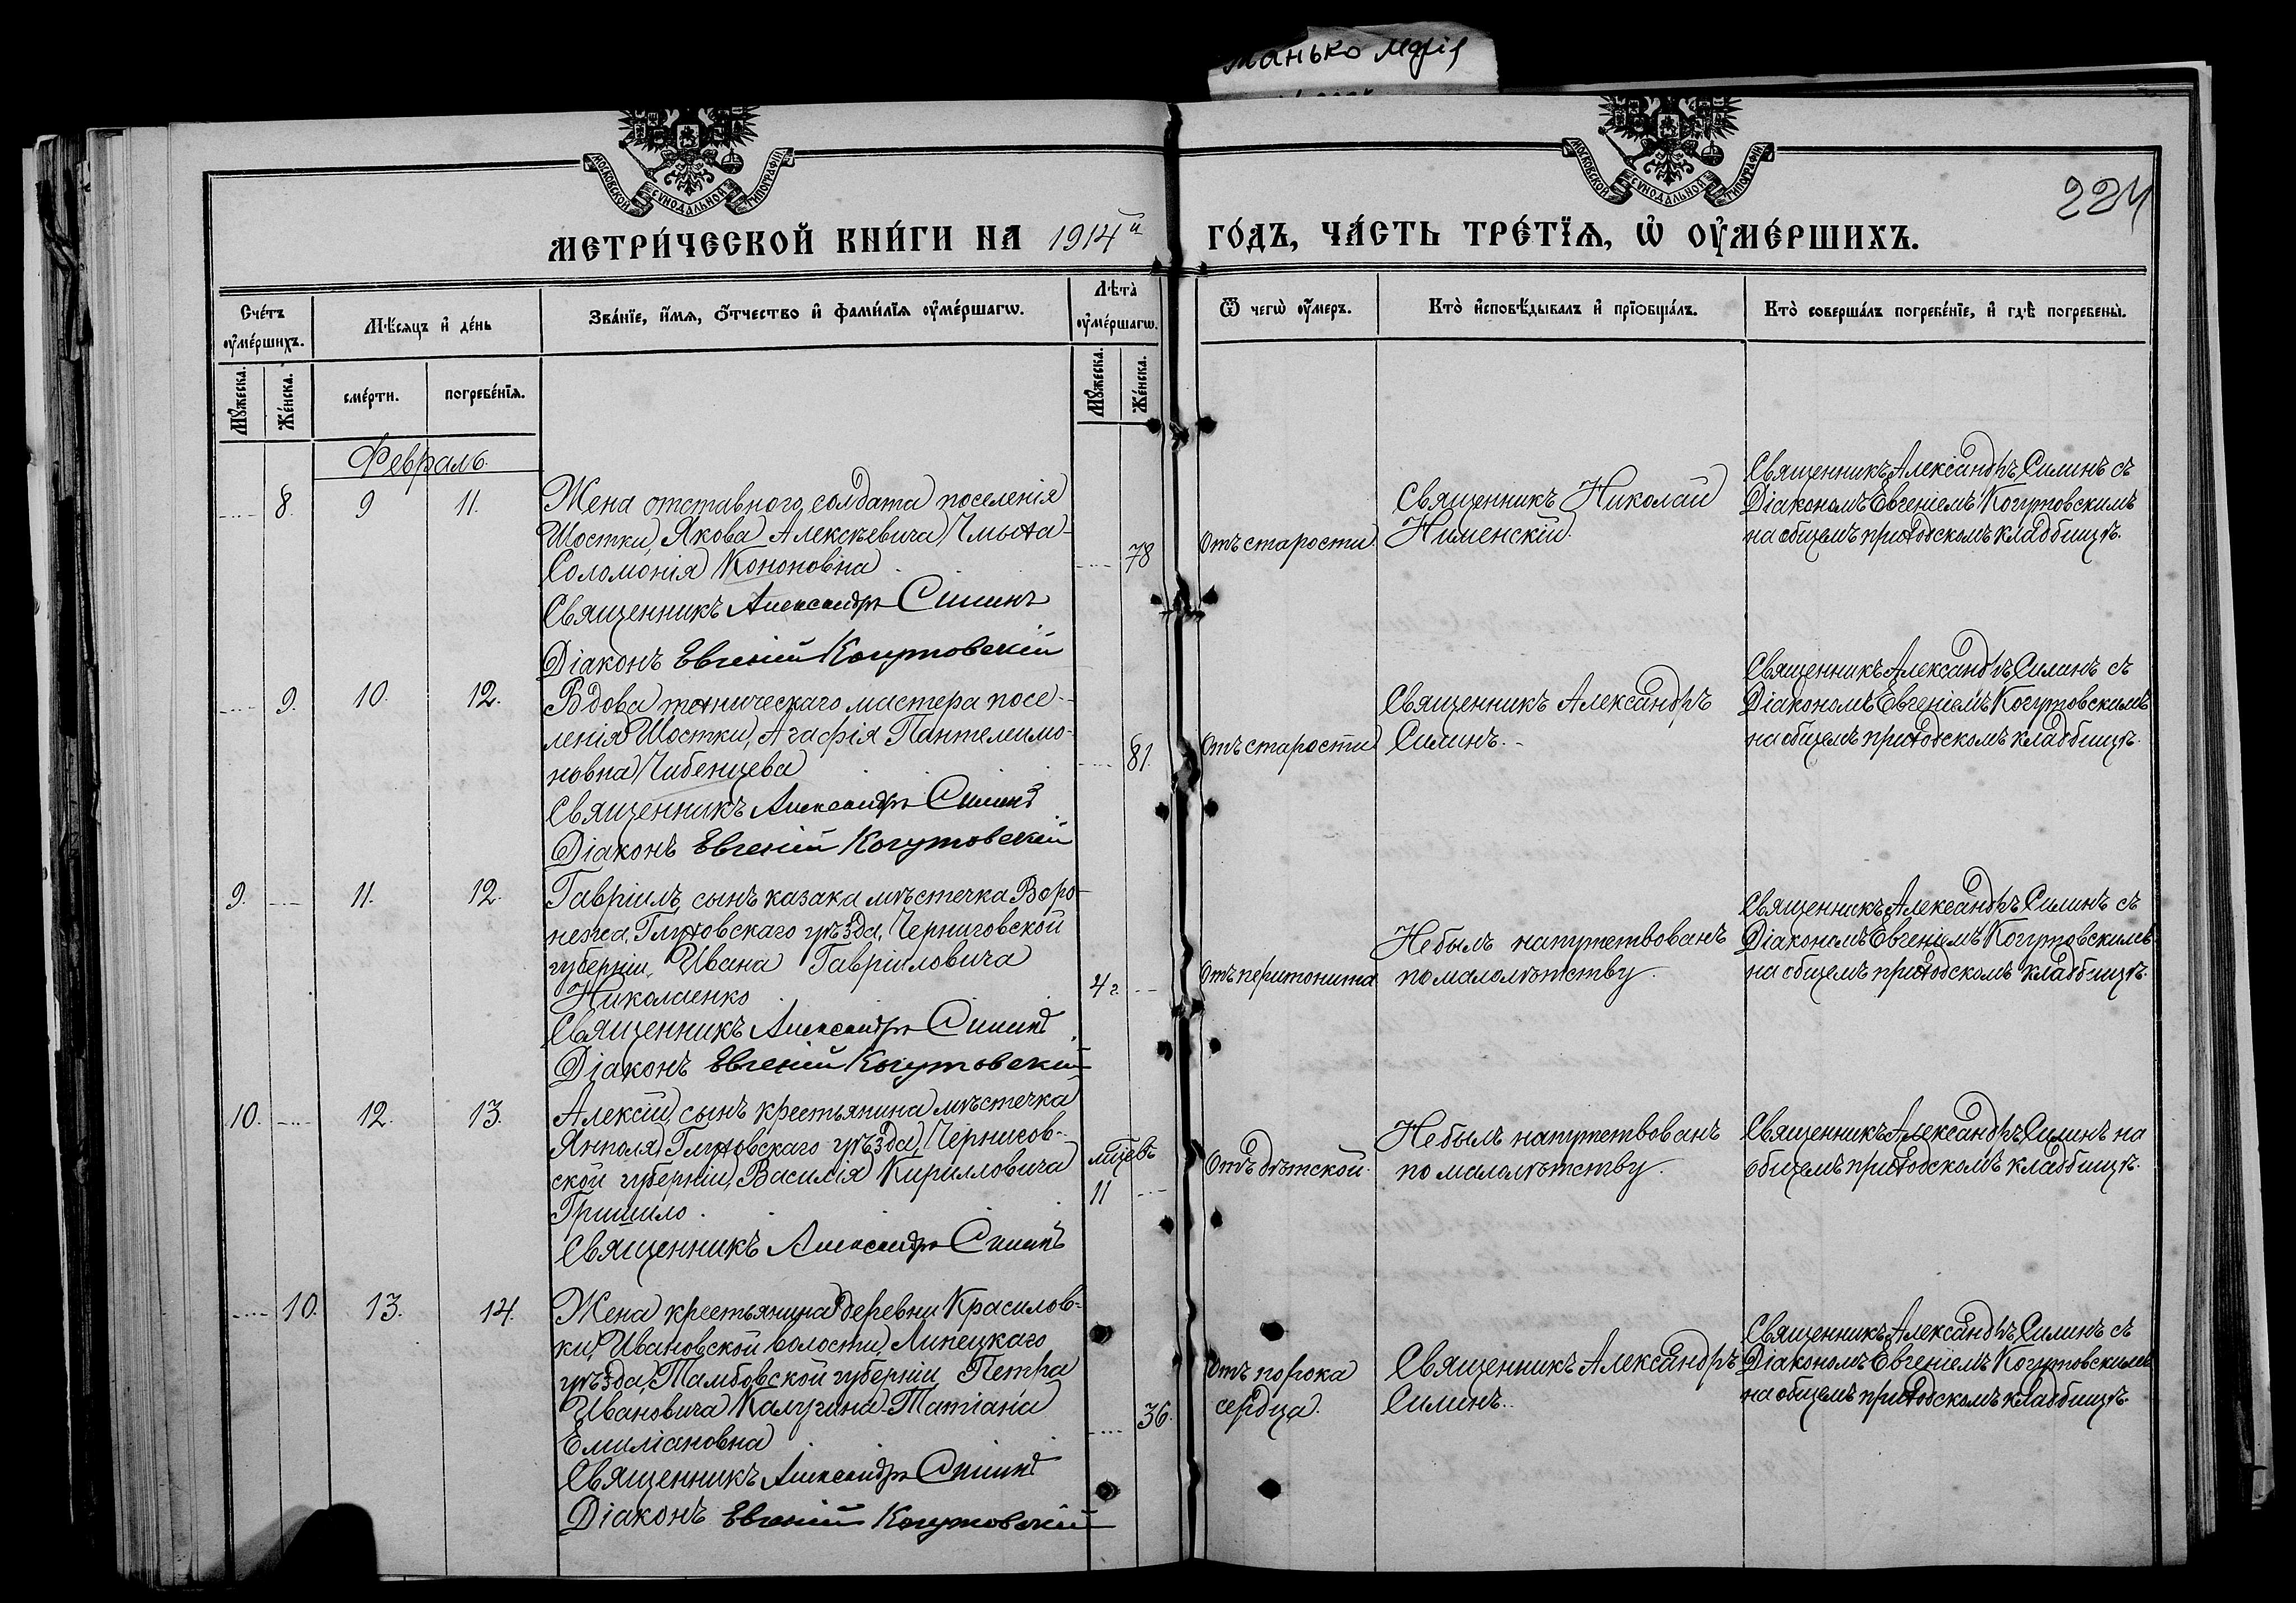 Манько Марія
МОСКОВСКОЙ СѴНОДАЛЬНОЙ ТИПОГРАФІИ
МОСКОВСКОЙ СѴНОДАЛЬНОЙ ТИПОГРАФІИ
224
МЕТРИ́ЧЕСКОЙ КНИ́ГИ НА 1914й
ГО́ДЪ, ЧА́СТЬ ТРЕ́ТЇѦ, Ѡ҆ ОУ҆МЕ́РШИХЪ.
Сче́тъ оу҆ме́ршихъ.
Мѣ́сѧцъ и҆ де́нь
Зва́нїе, и҆́мѧ, ѻ҆́тчество и҆ фами́лїѧ оу҆ме́ршагѡ.
Лѣта̀ оу҆ме́ршагѡ.
Ѿ чегѡ̀ оу҆́меръ.
Кто̀ и҆сповѣ́дывалъ и҆ прїѡбща́лъ.
Кто̀ соверша́лъ погребе́нїе, и҆ гдѣ̀ погребены̀.
Мꙋ́жеска.
Же́нска.
сме́рти.
погребе́нїѧ.
Мꙋ́жеска.
Же́нска.
Февраль.
8. 9 11.
Жена отставного солдата поселенія
Шостки, Якова Алексѣевича Чмыха-
Соломонія Кононовна.
Священникъ Александръ Силинъ
Діаконъ Евгеній Когутовскій
78
Отъ старости
Священникъ Николай
Нименскій.
Священникъ Александръ Силинъ съ
Діакономъ Евгеніемъ Когутовскимъ
на общемъ приходскомъ кладбищѣ.
9. 10. 12.
Вдова техническаго мастера посе-
ленія Шостки, Агафія Пантелеимо-
новна Чибенцева
Священникъ Александръ Силинъ
Діаконъ Евгеній Когутовскій
81.
Отъ старости
Священникъ Александръ
Силинъ.
Священникъ Александръ Силинъ съ
Діакономъ Евгеніемъ Когутовскимъ
на общемъ приходскомъ кладбищѣ.
9. 11. 12.
Гавріилъ, сынъ казака мѣстечка Воро-
нежа, Глуховскаго уѣзда, Черниговской
губерніи, Ивана Гавріиловича
Николаенко
Священникъ Александръ Силинъ
Діаконъ Евгеній Когутовскій
4 г.
Отъ перитонита
Не былъ напутствованъ
по малолѣтству.
Священникъ Александръ Силинъ съ
Діакономъ Евгеніемъ Когутовскимъ
на общемъ приходскомъ кладбищѣ.
10. 12. 13.
Алексій, сынъ крестьянина мѣстечка
Янполя, Глуховскаго уѣзда, Чернигов-
ской губерніи, Василія Кирилловича
Гришило.
Священникъ Александръ Силинъ
мѣцевъ
11
Отъ дѣтской.
Не былъ напутствованъ
по малолѣтству.
Священникъ Александръ Силинъ на
общемъ приходскомъ кладбищѣ.
10. 13. 14.
Жена крестьянина деревни Красилов-
ки, Ивановской волости, Липецкаго
уѣзда, Тамбовской губерніи Петра
Ивановича Калугина-Татіана
Емиліановна
Священникъ Александръ Силинъ
Діаконъ Евгеній Когутовскій
36.
Отъ порока
сердца.
Священникъ Александръ
Силинъ.
Священникъ Александръ Силинъ съ
Діакономъ Евгеніемъ Когутовскимъ
на общемъ приходскомъ кладбищѣ.